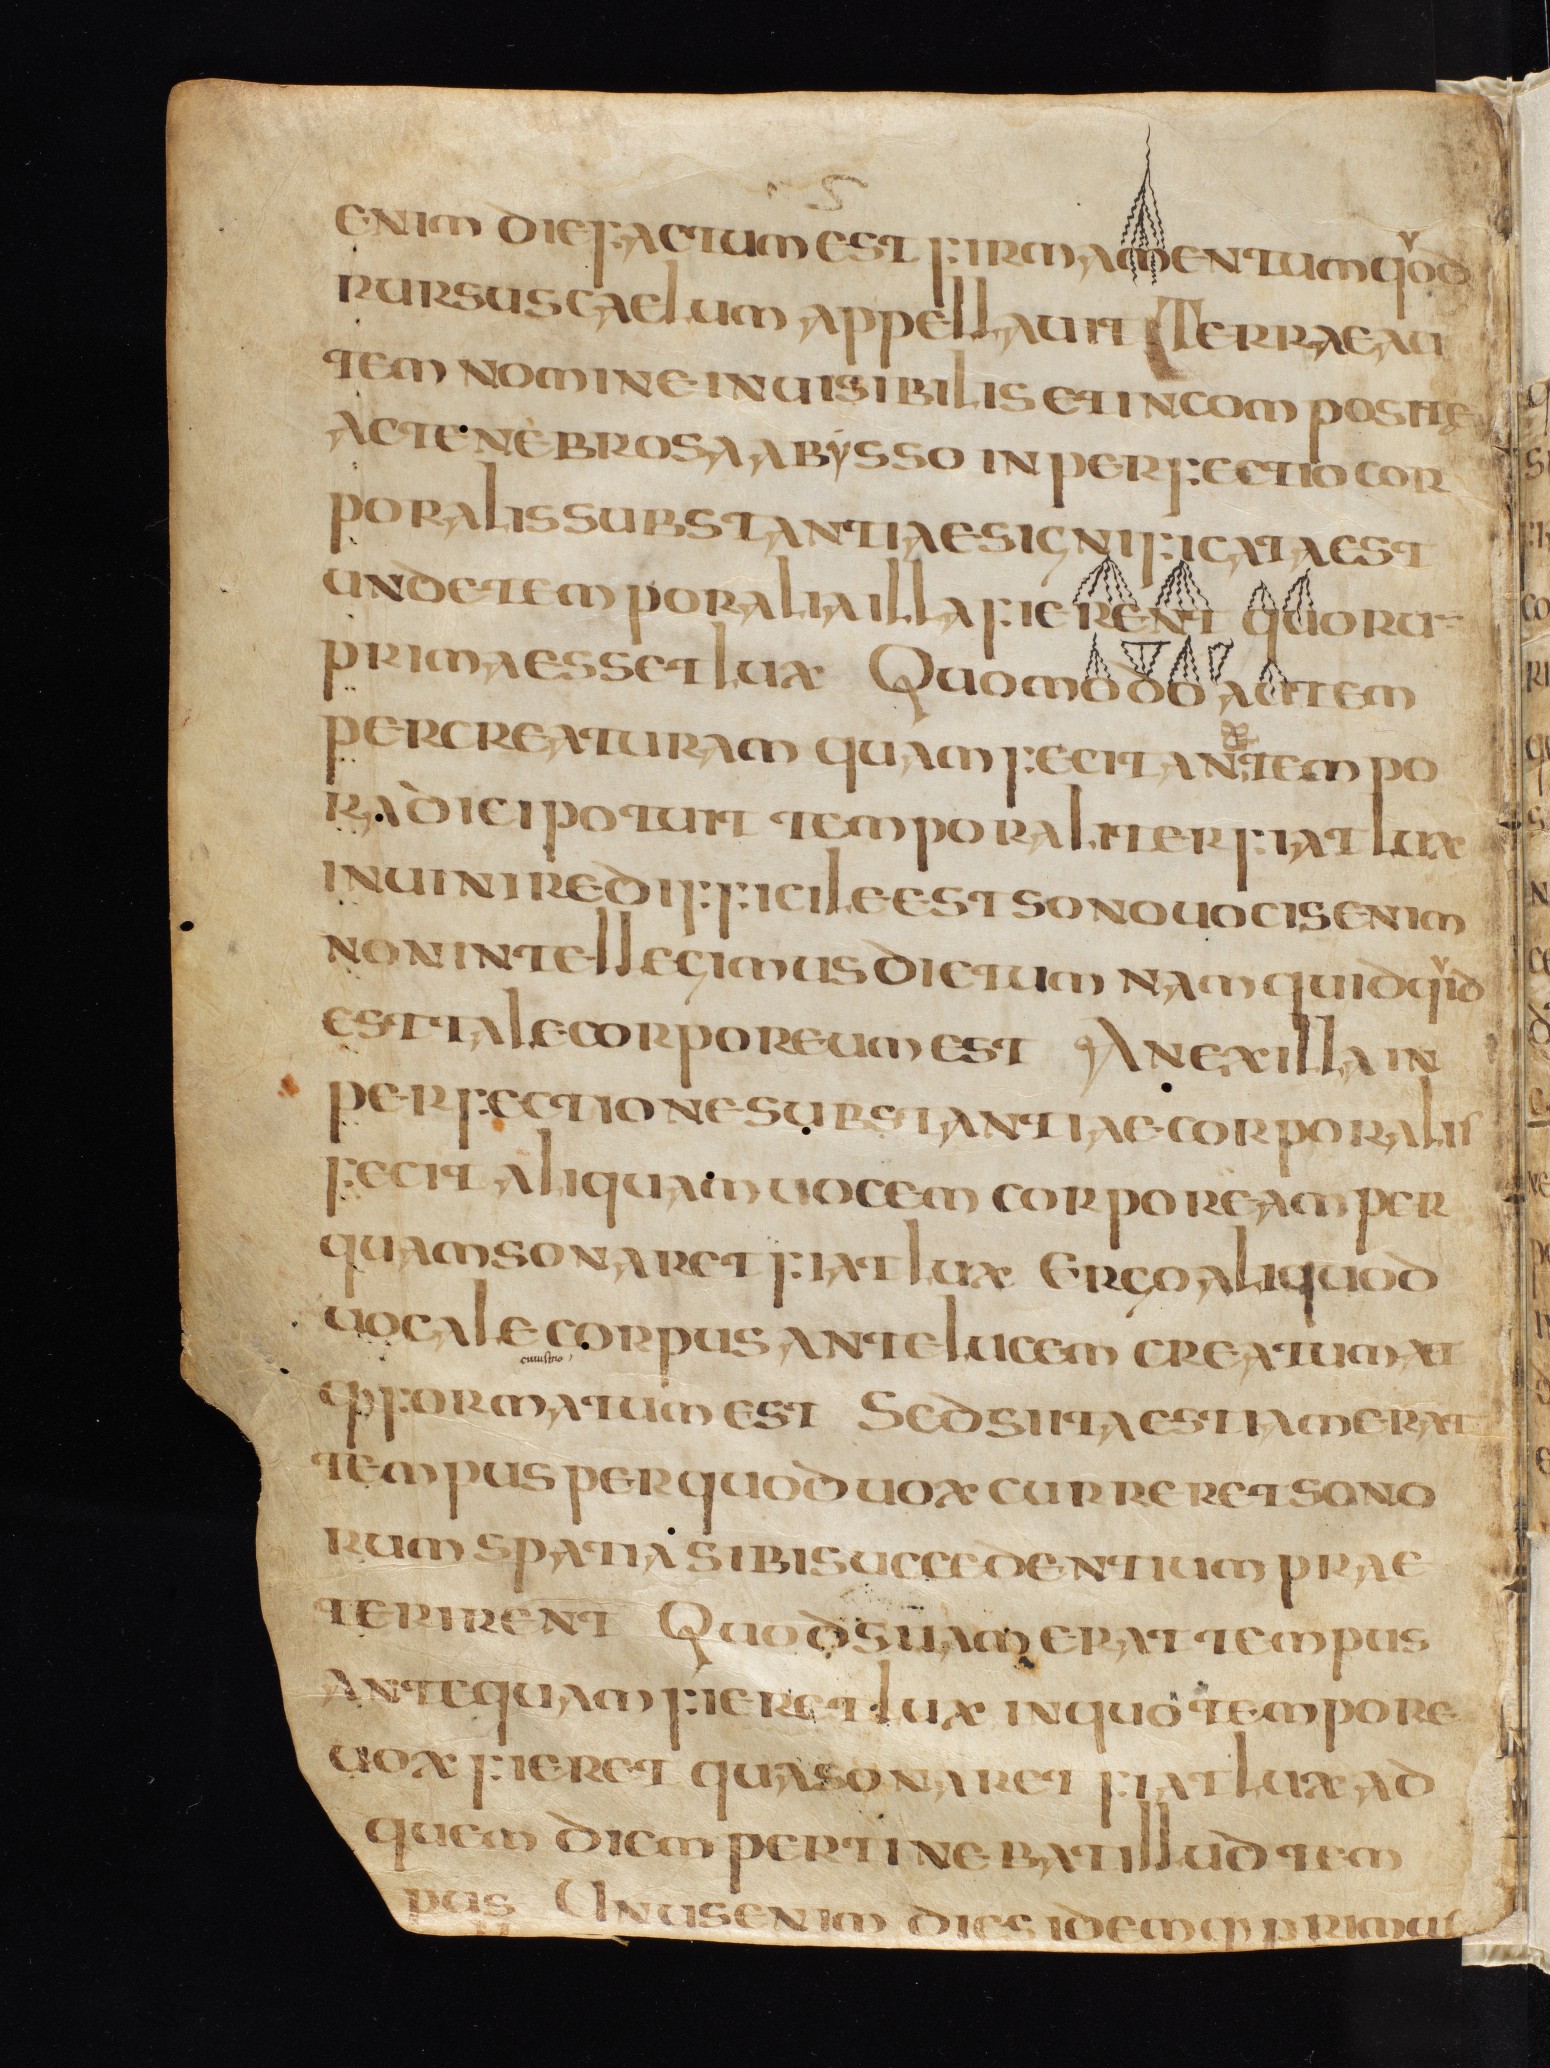 S
enim die factum est firmamentum qvod
rursus caelum appellauit Terrae au
tem nomine inuisibilis et incompositę
ac tenebrosa abysso inperfectio cor
poralis substantiae significata est
unde temporalia illa fierent quoru-
prima esset lux Quomodo autem
per creaturam quam fecit ante tempo
ra dici potuit temporaliter fiat lux
inuinire difficile est sono uocis enim
non intellegimus dictum nam quidqvid
est tale corporeum est An ex illa in
perfectione substantiae corporalis
fecit aliquam uocem corpoream per
quam sonaret fiat lux Ergo aliquod
uocale corpus ante lucem creatum at
q· formatum est Sed si ita est iam erat
tempus per quod uox curreret sono
rum spatia sibi succedentium prae
terirent Quod si iam erat tempus
antequam fieret lux in quo tempore
uox fieret qua sonaret fiat lux ad
quem diem pertinebat illud tem
pus Unus enim dies idemq· primus